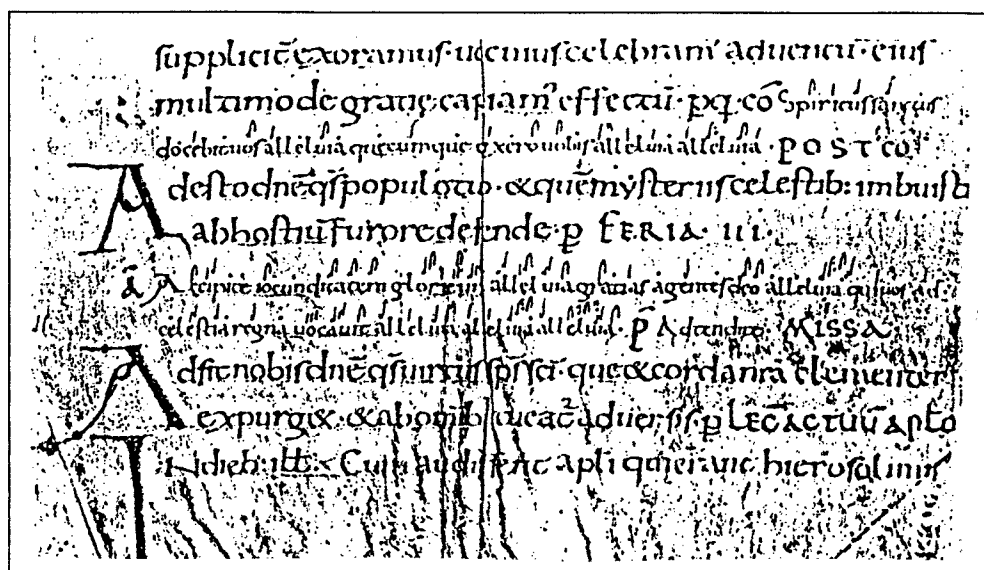 suppliciт̄ exoramus· ut cuius celebram̄ aduentū· eius
multimode gratie capiam̄ effectū· p̄ co᷃ sp̄iritus sanctus
docebit uos alleluia quecumque dixero uobis alleluia alleluia · POST cō
Adesto dn̄e q̄s populo tuo· & quē mysteriis celestib: imbuisti
ab hostiū furore defende· p̄ FERIA · III·
ā Accipite iocunditatem glorie ur̄e alleluia gratias agentes deo alleluia qui uos ad
celestia regna uocauit alleluia alleluia alleluia· P̄ Adtendite· MISSA
Adsit nobis dn̄e q̄s uirtus sp̄s sc̄i· que & corda nr̄a clementer
expurg&· & ab omīb tueat̄ aduersis· p̄ LEC̄ ACTUŪ APL̄O
IN dieb: ill̄· Cum audissent apl̄i qui erant hierosolimis